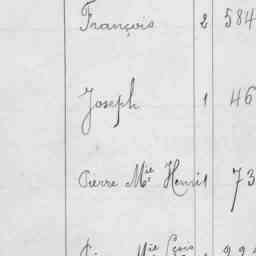 François 2 584
Joseph 1 46
Pierre Mie Henri 1 73
Mie